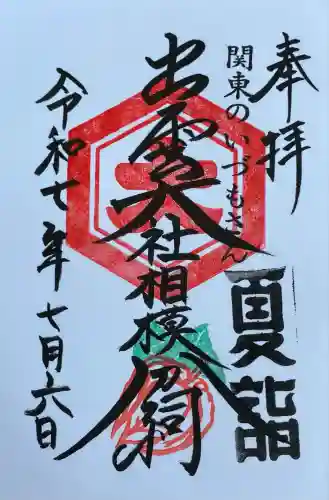 奉拝
夏詣
関東のいづもさん
出雲大社相模分祠
令和七年七月六日